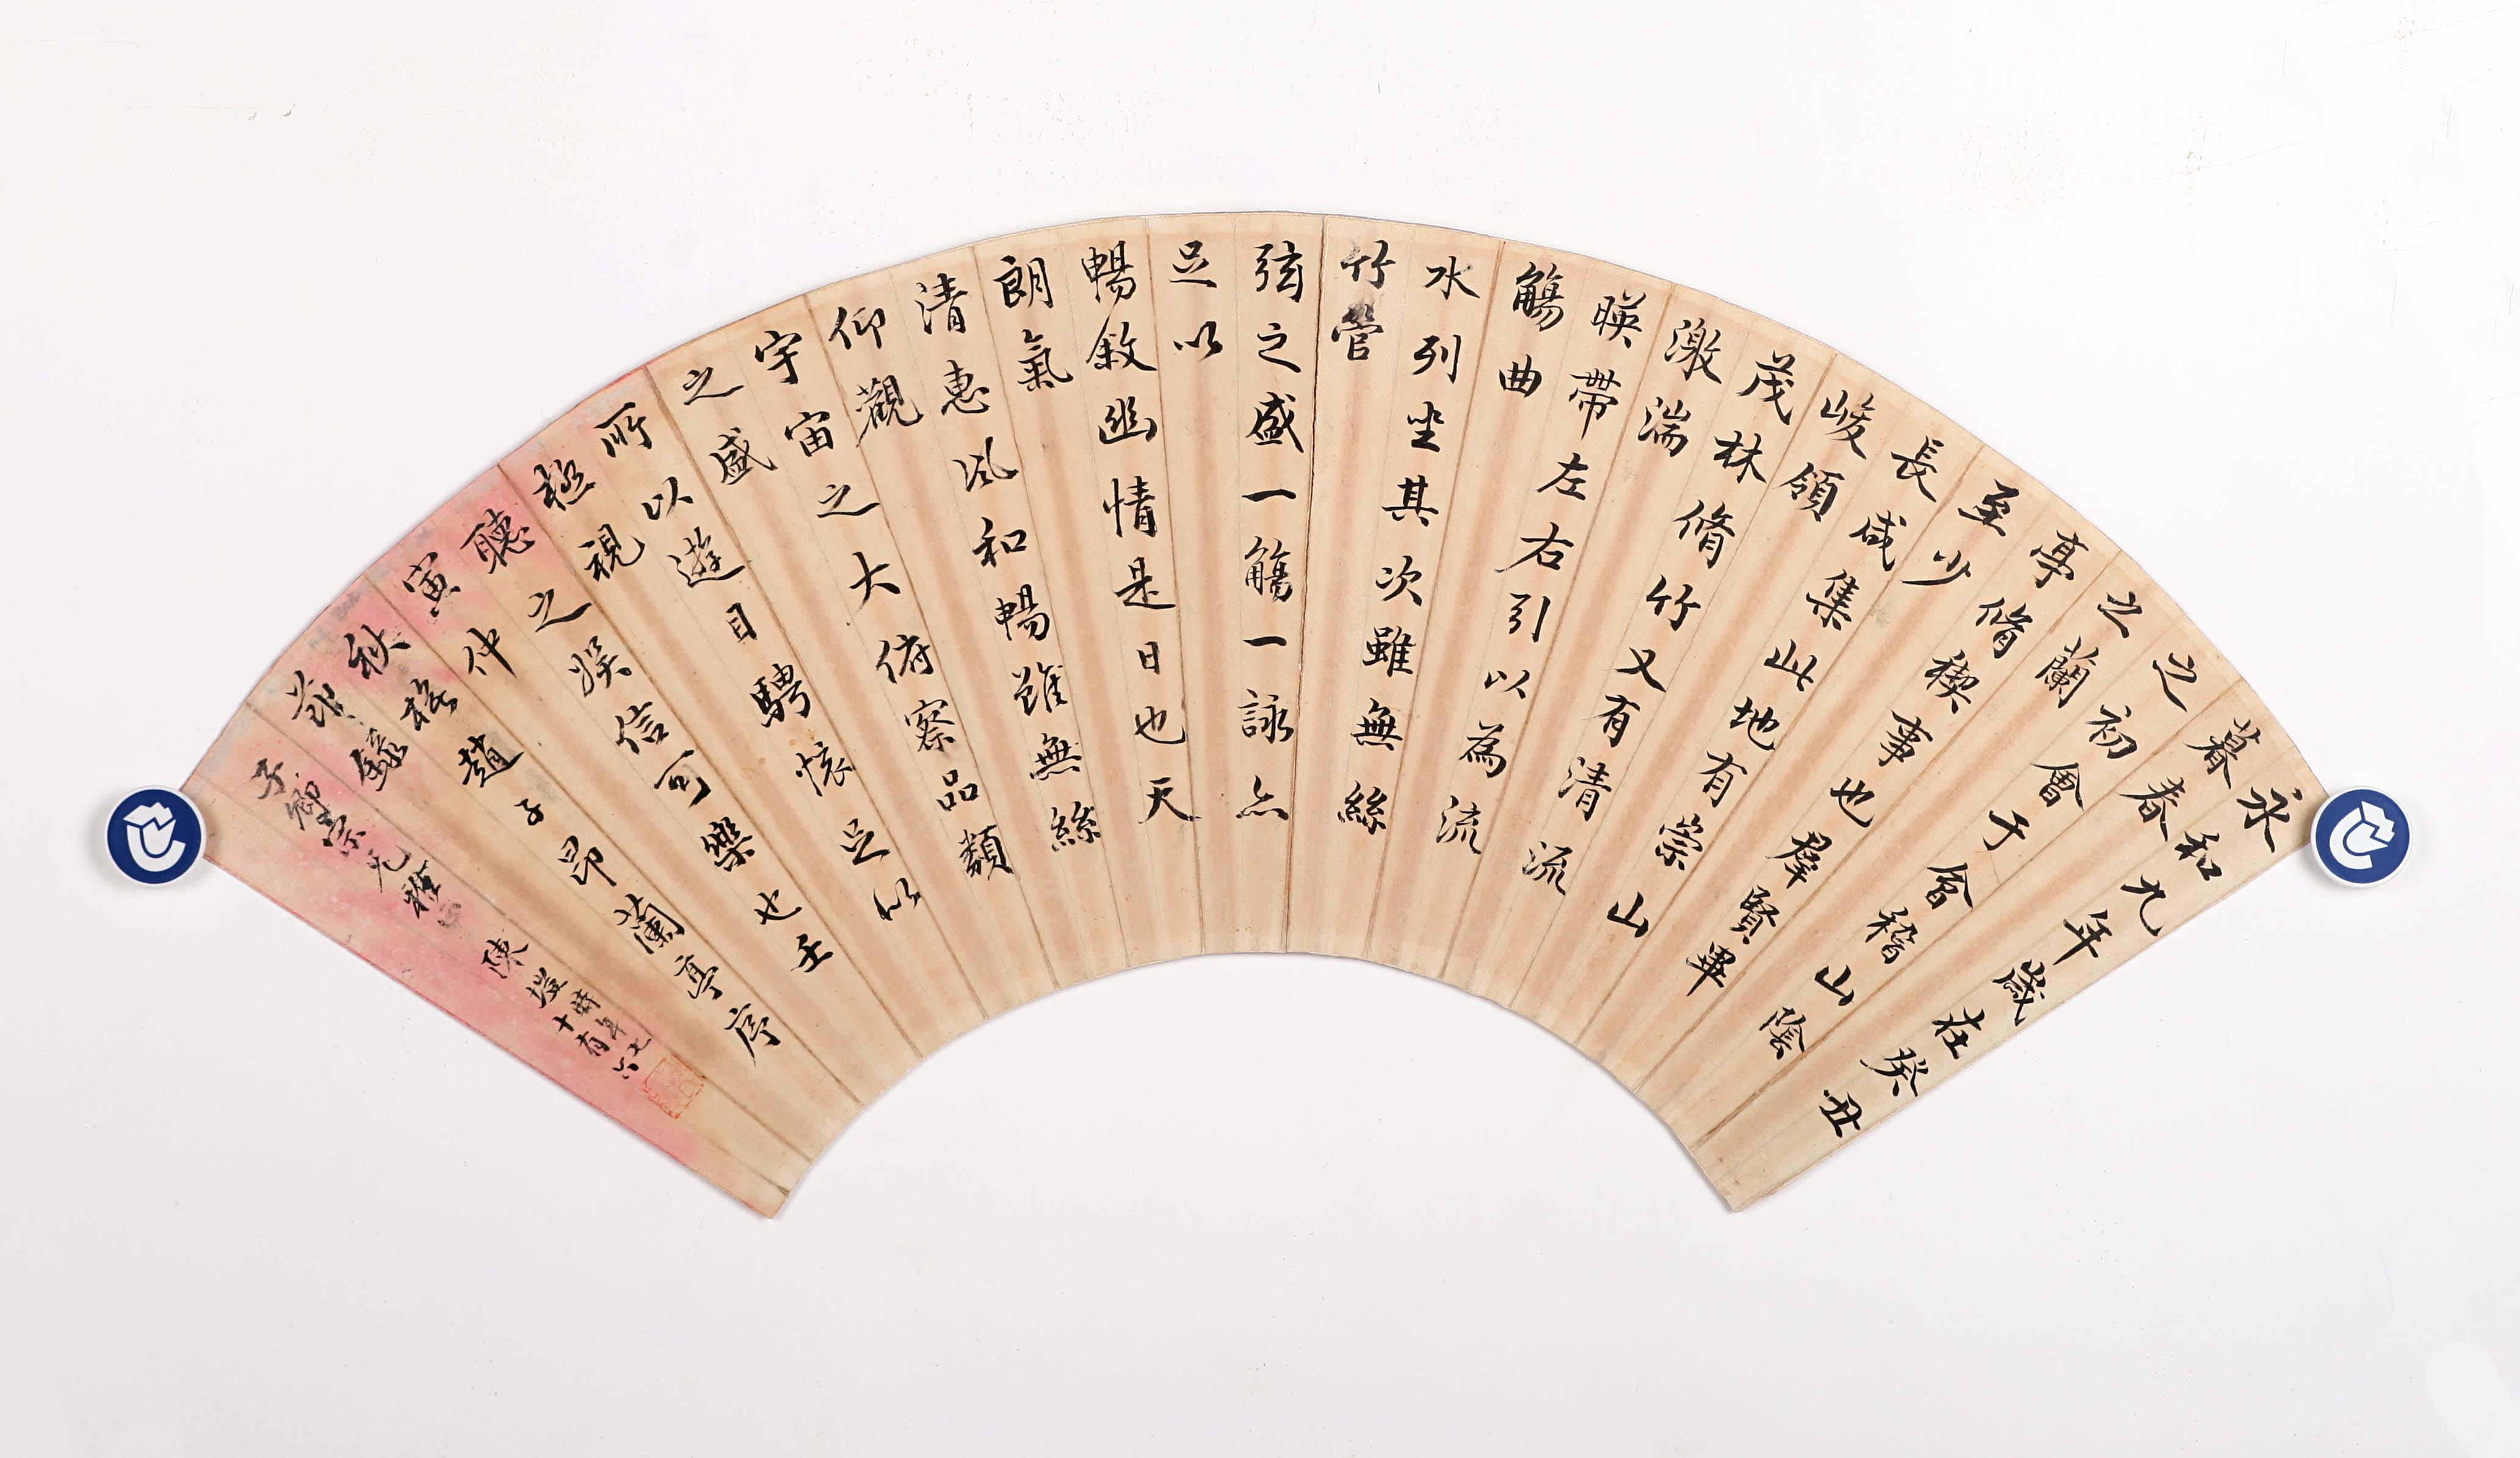 永和九年歲在癸丑
暮春
之初會于會稽山陰
之蘭
亭脩禊事也羣賢畢
至少
長咸集此地有崇山
峻領
茂林脩竹又有清流
激湍
暎帶左右引以為流
觴曲
水列坐其次雖無絲
竹管
弦之盛一觴一詠亦
足以
暢敘幽情是日也天
朗氣
清惠風和暢雖無絲
仰觀
宇宙之大俯察品類
之盛
所以遊目騁懷足以
極視
聽之娛信可樂也壬
寅仲
秋橅趙子昂蘭亭序
節錄
子卿宗兄雅
陳塏時年七
十有六